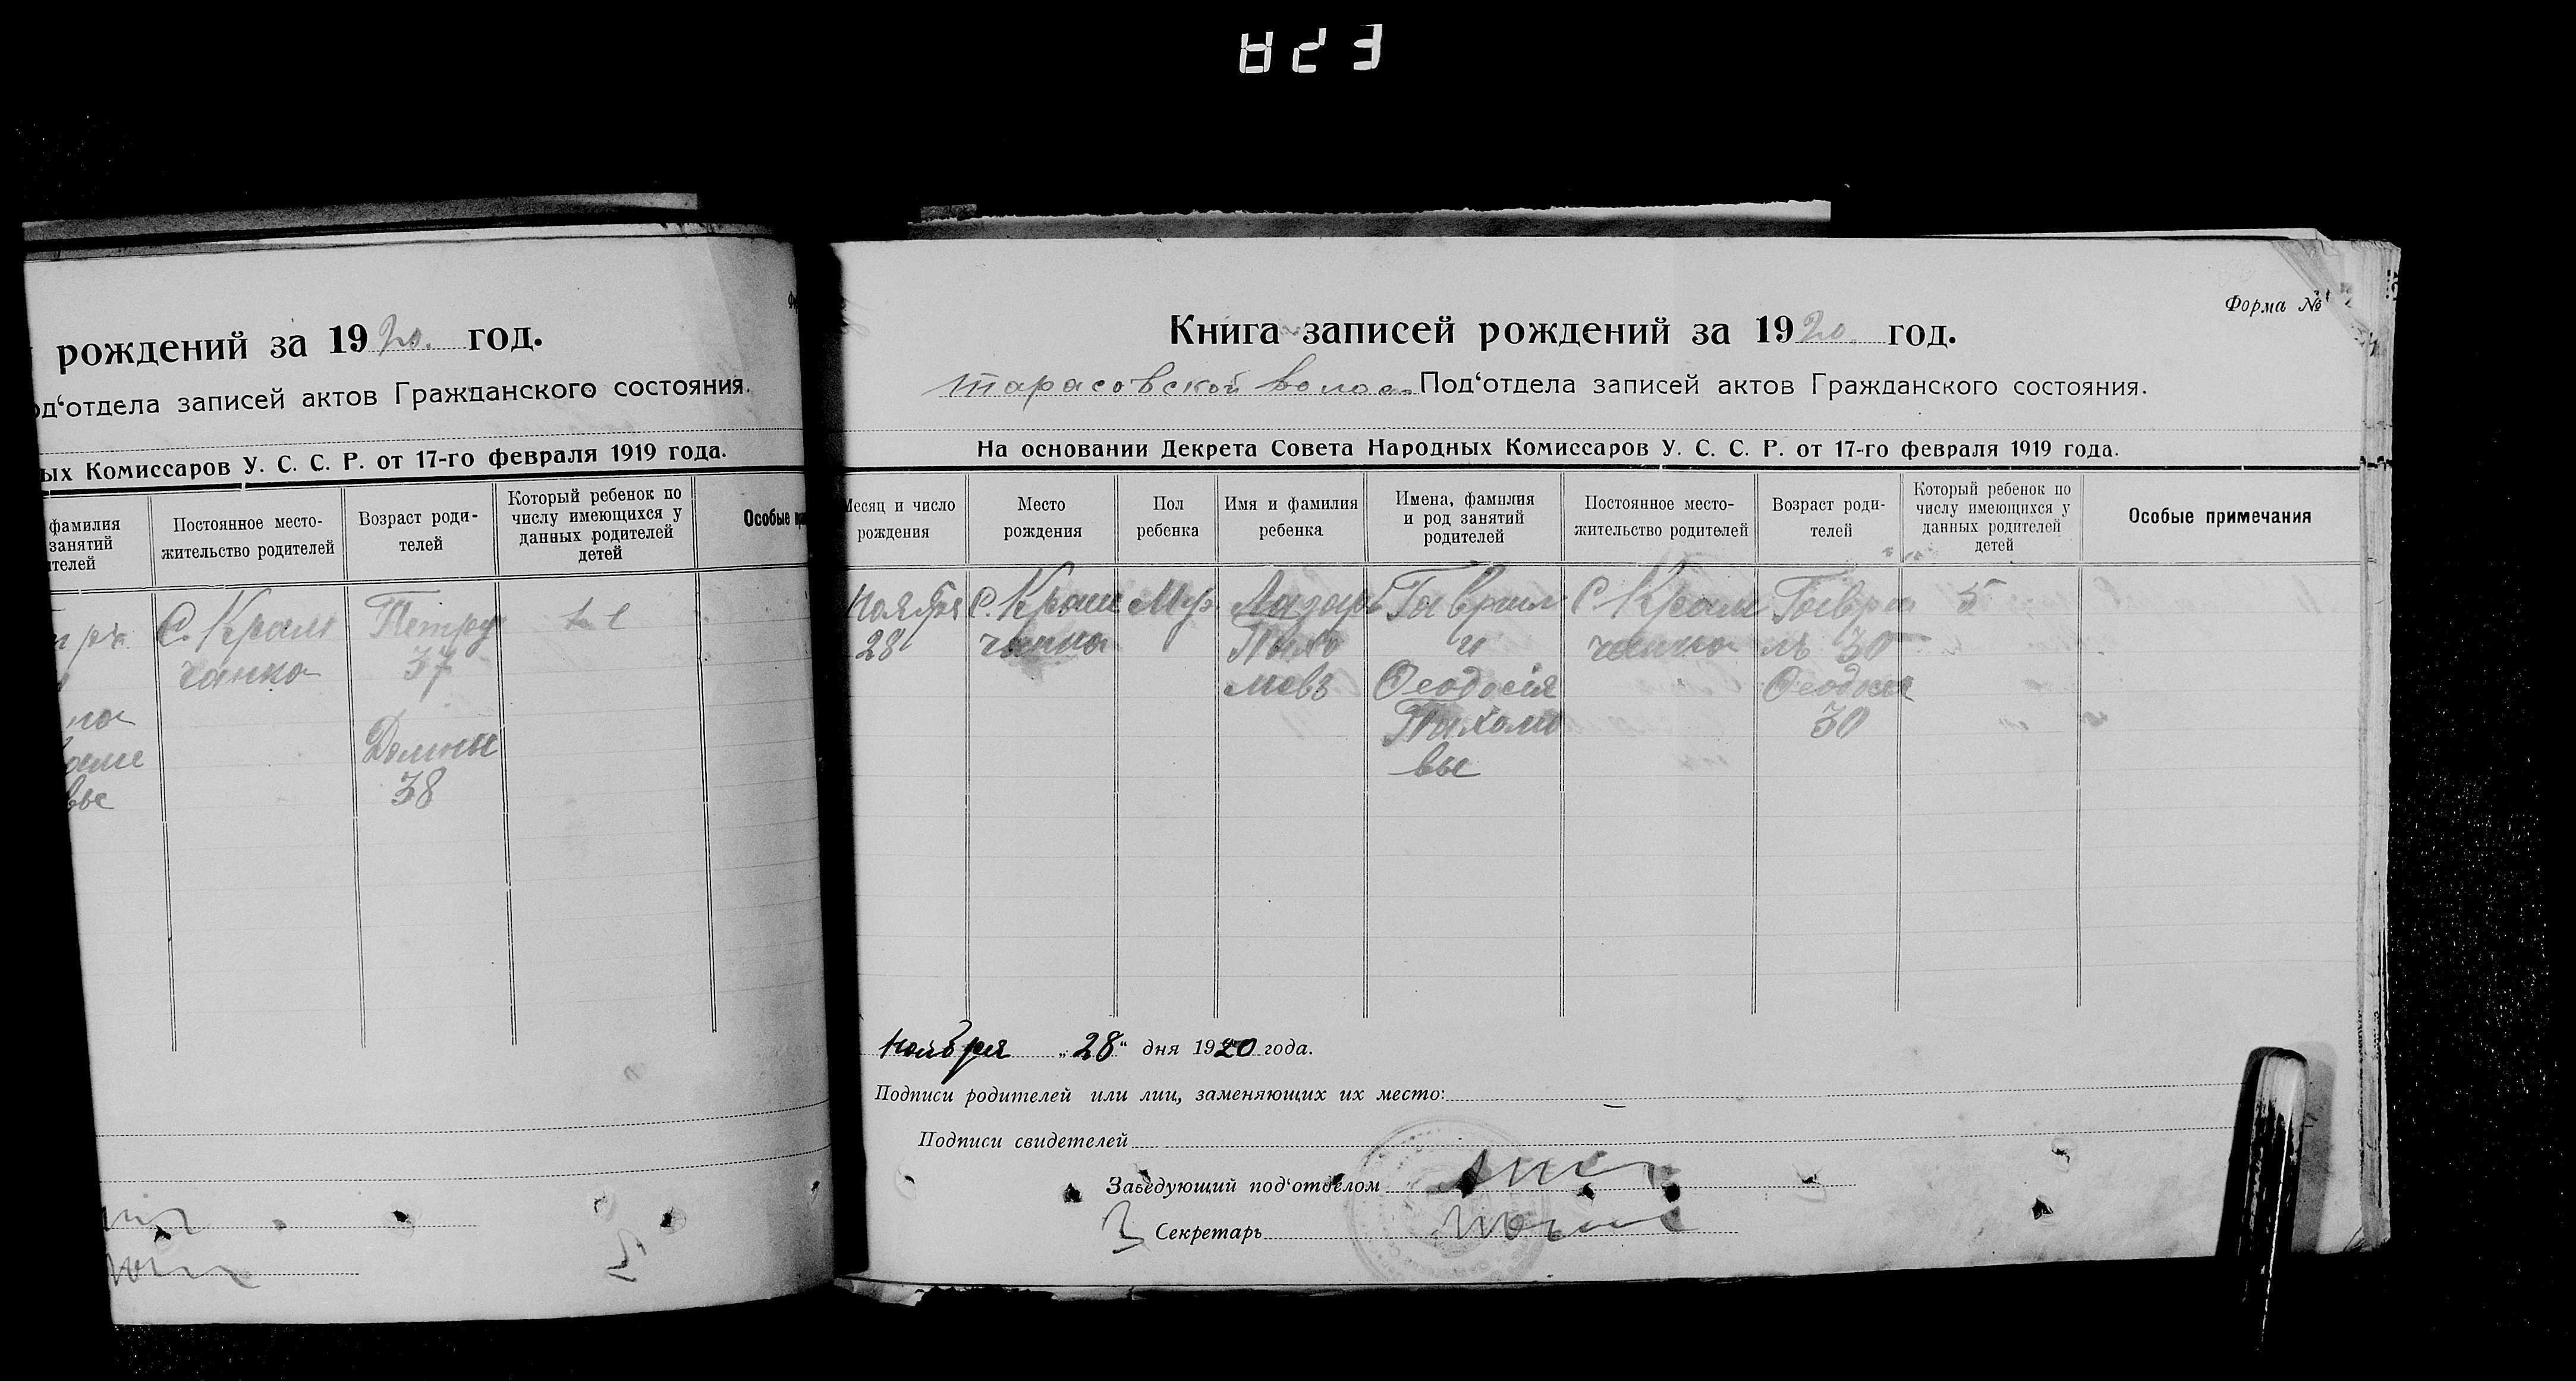 823
рождений за 1920. год.
од‘отдела записей актов Гражданского состояния.
ых Комиссаров У. С. С. Р. от 17-го февраля 1919 года.
фамилия
занятий
ителей
Постоянное место-
жительство родителей
Возраст роди-
телей
Который ребенок по
числу имеющихся у
данных родителей
детей
Особые
С. Крам
чанка
Петру
37
Домны
38
вые
Форма №
Книга записей рождений за 1920. год.
Тарасовской волос. Под‘отдела записей актов Гражданского состояния.
На основании Декрета Совета Народных Комиссаров У. С. С. Р. от 17-го февраля 1919 года.
Месяц и число
рождения
Место
рождения
Пол
ребенка
Имя и фамилия
ребенка
Имена, фамилия
и род занятий
родителей
Постоянное место-
жительство родителей
Возраст роди-
телей
Который ребенок по
числу имеющихся у
данных родителей
детей
Особые примечания
Ноября
28
С. Крам
чанка
Муж.
Лазарь
Пахо
мовъ
Гаврил
и
Феодосія
Пахомо
вы
С. Крам
чанка
Гаври
лъ 30
Феодосія
30
5
Ноября „28“ дня 1920 года.
Подписи родителей или лиц, заменяющих их место:
Подписи свидетелей
Заведующий под‘отделом
Секретарь